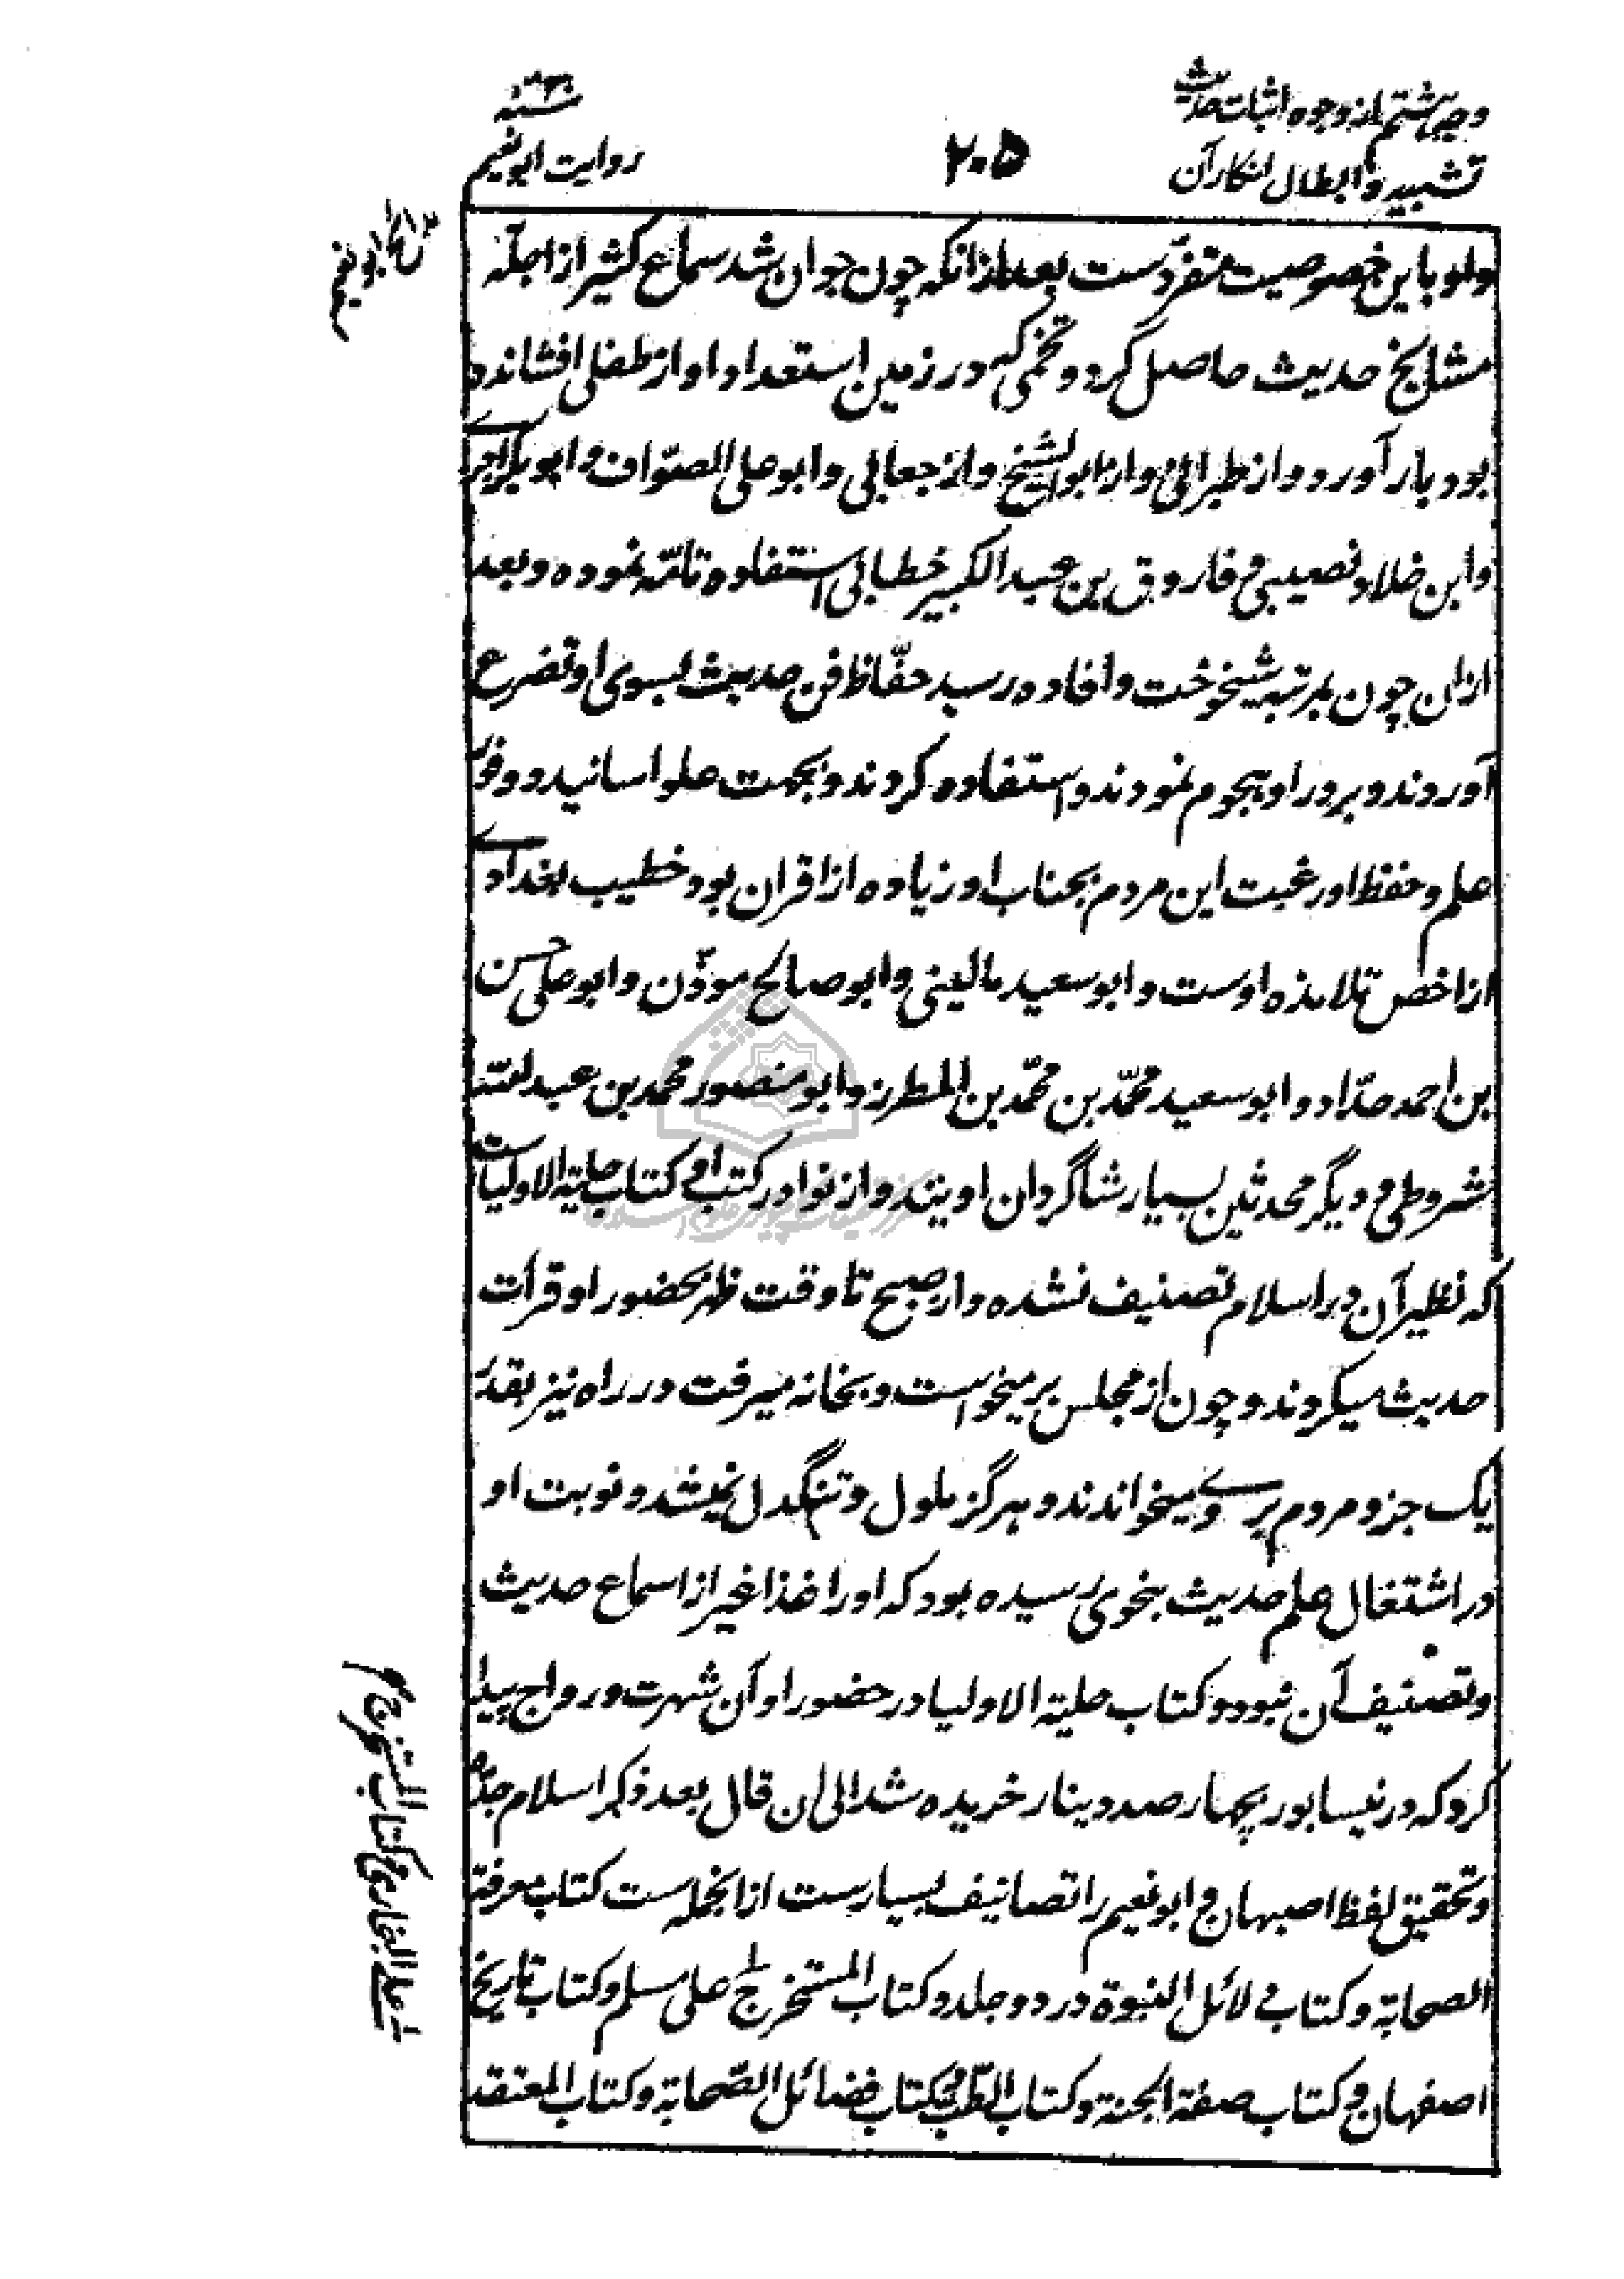 وجه هشتم از وجوه اثبات حدیث
تشبیه و ابطال انکار آن
۲۰۵
سنه ۴۳۰
روایت ابونعیم
مدائح ابو نعیم
و او باین خصوصیت متفردست بعد ازانکه چون جوان شد سماع کثیر از اجلّه
مشایخ حدیث حاصل کرد و تخمی که در زمین استعداد او از طفلی افشانده
بود بار آورد و از طبرانی و از ابو الشیخ و از جعابی و ابو علی الصوّاف و ابوبکر آجری
و ابن خلاد نصیبی و فاروق بن عبد الکبیر خطابی استفاده تامّه نموده و بعد
ازان چون بمرتبه شیخوخت و افاده رسید حفّاظ فن حدیث بسوی او تضرع
آوردند و بر در او هجوم نمودند و استفاده کردند و بجهت علو اسانید و وفور
علم و حفظ او رغبت این مردم بجناب او زیاده از اقران بود خطیب بغدادی
از اخص تلامذه اوست و ابو سعید مالینی و ابو صالح موذّن و ابو علی حسن
بن احمد حدّاد و ابو سعید محمّد بن محمّد بن المطرز و ابو منصور محمد بن عبد الله
شروطی و دیگر محدثین بسیار شاگردان اویند و از نوادر کتب او کتاب حلیة الاولیاست
که نظیر آن در اسلام تصنیف نشده و از صبح تا وقت ظهر بحضور او قرأت
حدیث میکردند و چون از مجلس برمیخواست و بخانه میرفت در راه نیز بقدر
یک جزو مردم بر وی میخواندند و هرگز ملول و تنگدل نمیشد و نوبت او
در اشتغال علم حدیث بنحوی رسیده بود که او را غذا غیر از اسماع حدیث
و تصنیف آن نبود و کتاب حلیة الاولیا در حضور او آن شهرت و رواج پیدا
کرد که در نیسابور بچهار صد دینار خریده شد الی ان قال بعد ذکر اسلام جدّه
و تحقیق لفظ اصبهان و ابو نعیم را تصانیف بسیارست ازانجمله‌ست کتاب معرفة
الصحابة و کتاب دلائل النبوة در دو جلد و کتاب المستخرج علی مسلم و کتاب تاریخ
اصفهان و کتاب صفة الجنة و کتاب الطب و کتاب فضائل الصّحابة و کتاب المعتقد
علی البخاری و کتاب المستخرج